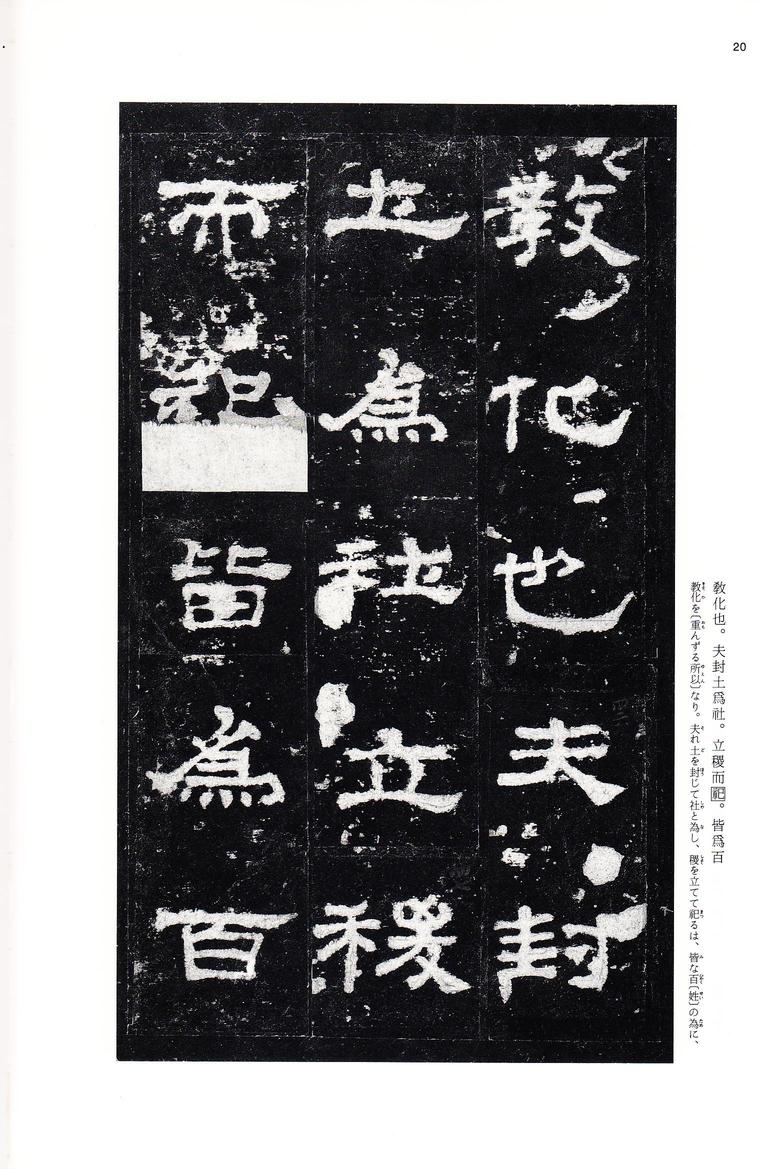 20
敎化也。夫封土爲社。立稷而祀。皆爲百
教化を〔重んずる所以〕なり。夫れ土を封じて社と為し、稷を立てて祀るは、皆な百〔姓〕の為に、
敎化也夫封
土爲社立稷
而祀皆爲百